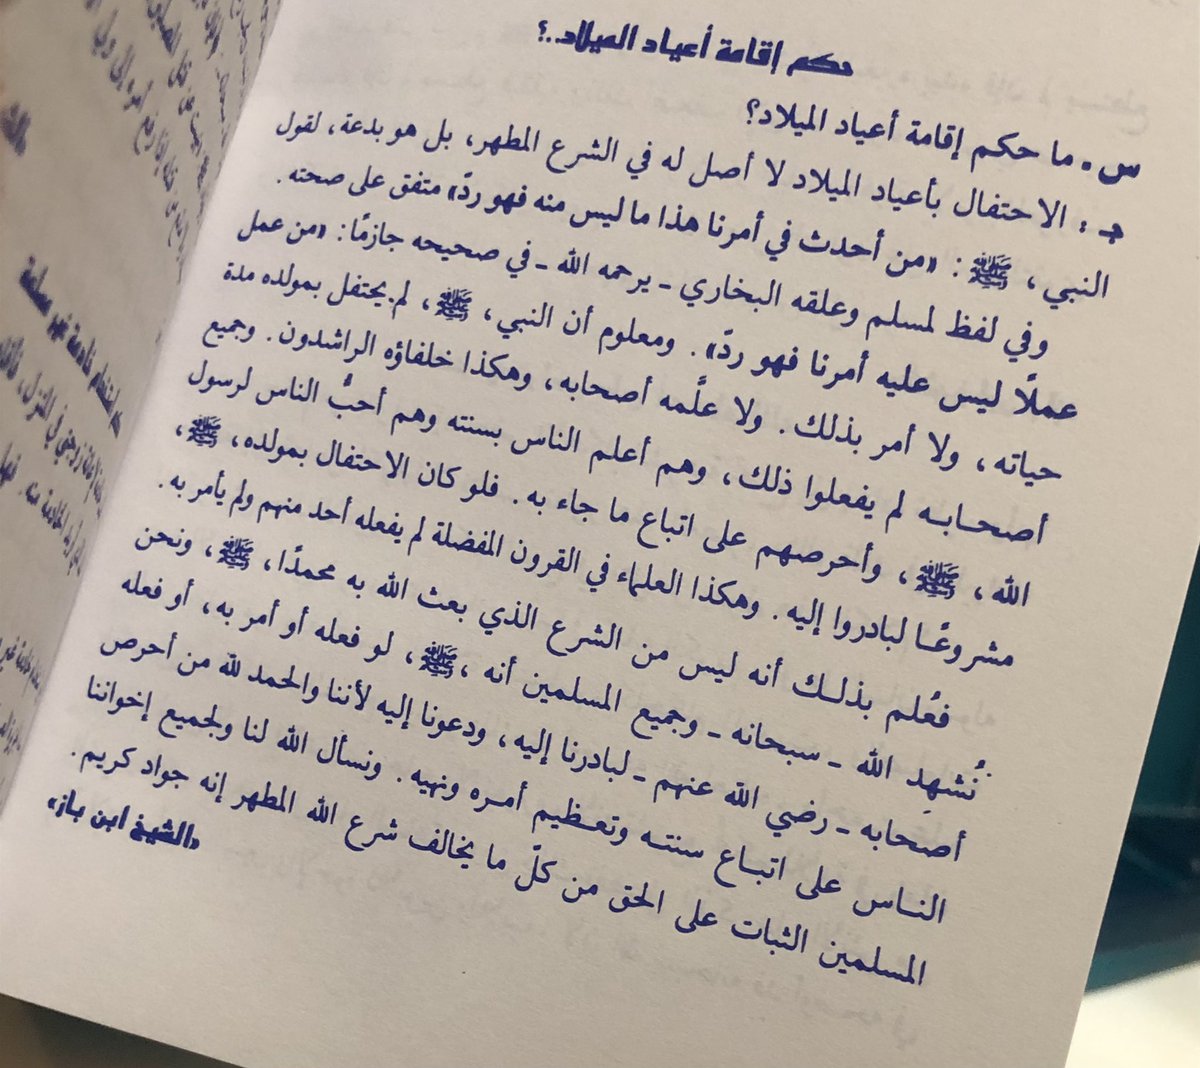 حكم إقامة أعياد الميلاد..؟
س . ما حكم إقامة أعياد الميلاد؟
جـ : الاحتفال بأعياد الميلاد لا أصل له في الشرع المطهر، بل هو بدعة، لقول
النبي، ﷺ: «من أحدث في أمرنا هذا ما ليس منه فهو ردّ» متفق على صحته.
وفي لفظ لمسلم وعلقه البخاري ـ يرحمه الله ـ في صحيحه جازمًا: «من عمل
عملًا ليس عليه أمرنا فهو ردّ». ومعلوم أن النبي، ﷺ، لم يحتفل بمولده مدة
حياته، ولا أمر بذلك. ولا علَّمه أصحابه، وهكذا خلفاؤه الراشدون. وجميع
أصحـابـه لم يفعلوا ذلك، وهم أعلم الناس بسنته وهم أحبُّ الناس لرسول
الله، ﷺ، وأحرصهم على اتباع ما جاء به. فلو كان الاحتفال بمولده، ﷺ،
مشروعًـا لبادروا إليه. وهكذا العلماء في القرون المفضلة لم يفعله أحد منهم ولم يأمر به.
فعُلم بذلـك أنه ليس من الشرع الذي بعث الله به محمدًا، ﷺ، ونحن
نُشهِد الله ـ سبحانه ـ وجميع المسلمين أنه، ﷺ، لو فعله أو أمر به، أو فعله
أصحابه ـ رضي الله عنهم ـ لبادرنا إليه، ودعونا إليه لأننا والحمد لله من أحرص
النـاس على اتبـاع سنتـه وتعـظيم أمـره ونهيه. ونسأل الله لنا ولجميع إخواننا
المسلمين الثبات على الحق من كلّ ما يخالف شرع الله المطهر إنه جواد كريم.
«الشيخ ابن باز»